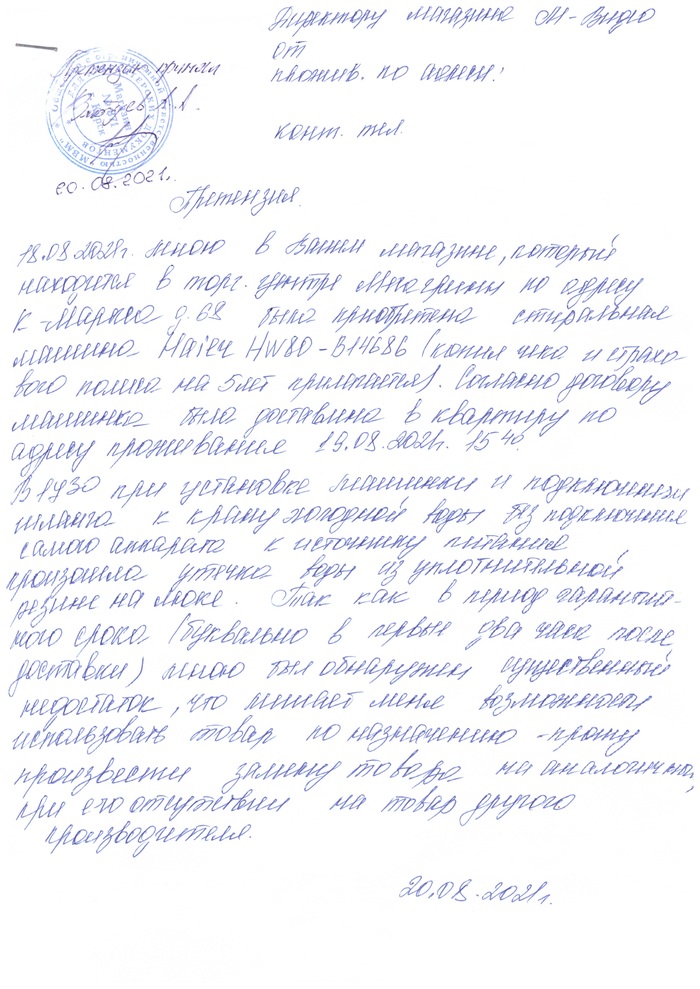 Директору магазина М-Видео
от
прожив. по адресу:
конт. тел.
Претензия принял
А.А.
20.08.2021г.
Претензия.
18.08.2021г. мною в Вашем магазине, который
находится в торг. центре Мегагринн по адресу
К-Маркса д. 68 была приобретена стиральная
машина Haier HW80-B14686 (копия чека и страхо-
вого полиса на 5 лет прилагается). Согласно договору
машинка была доставлена в квартиру по
адресу проживания 19.08.2021г. 15 40.
В 17 30 при установке машинки и подключении
шланга к крану холодной воды без подключения
самого аппарата к источнику питания
произошла утечка воды из уплотнительной
резине на люке. Так как в период гарантий-
ного срока (буквально в первые два часа после
доставки) мною был обнаружен существенный
недостаток, что лишает меня возможности
использовать товар по назначению - прошу
произвести замену товара на аналогичный,
при его отсутствии на товар другого
производителя.
20.08.2021г.